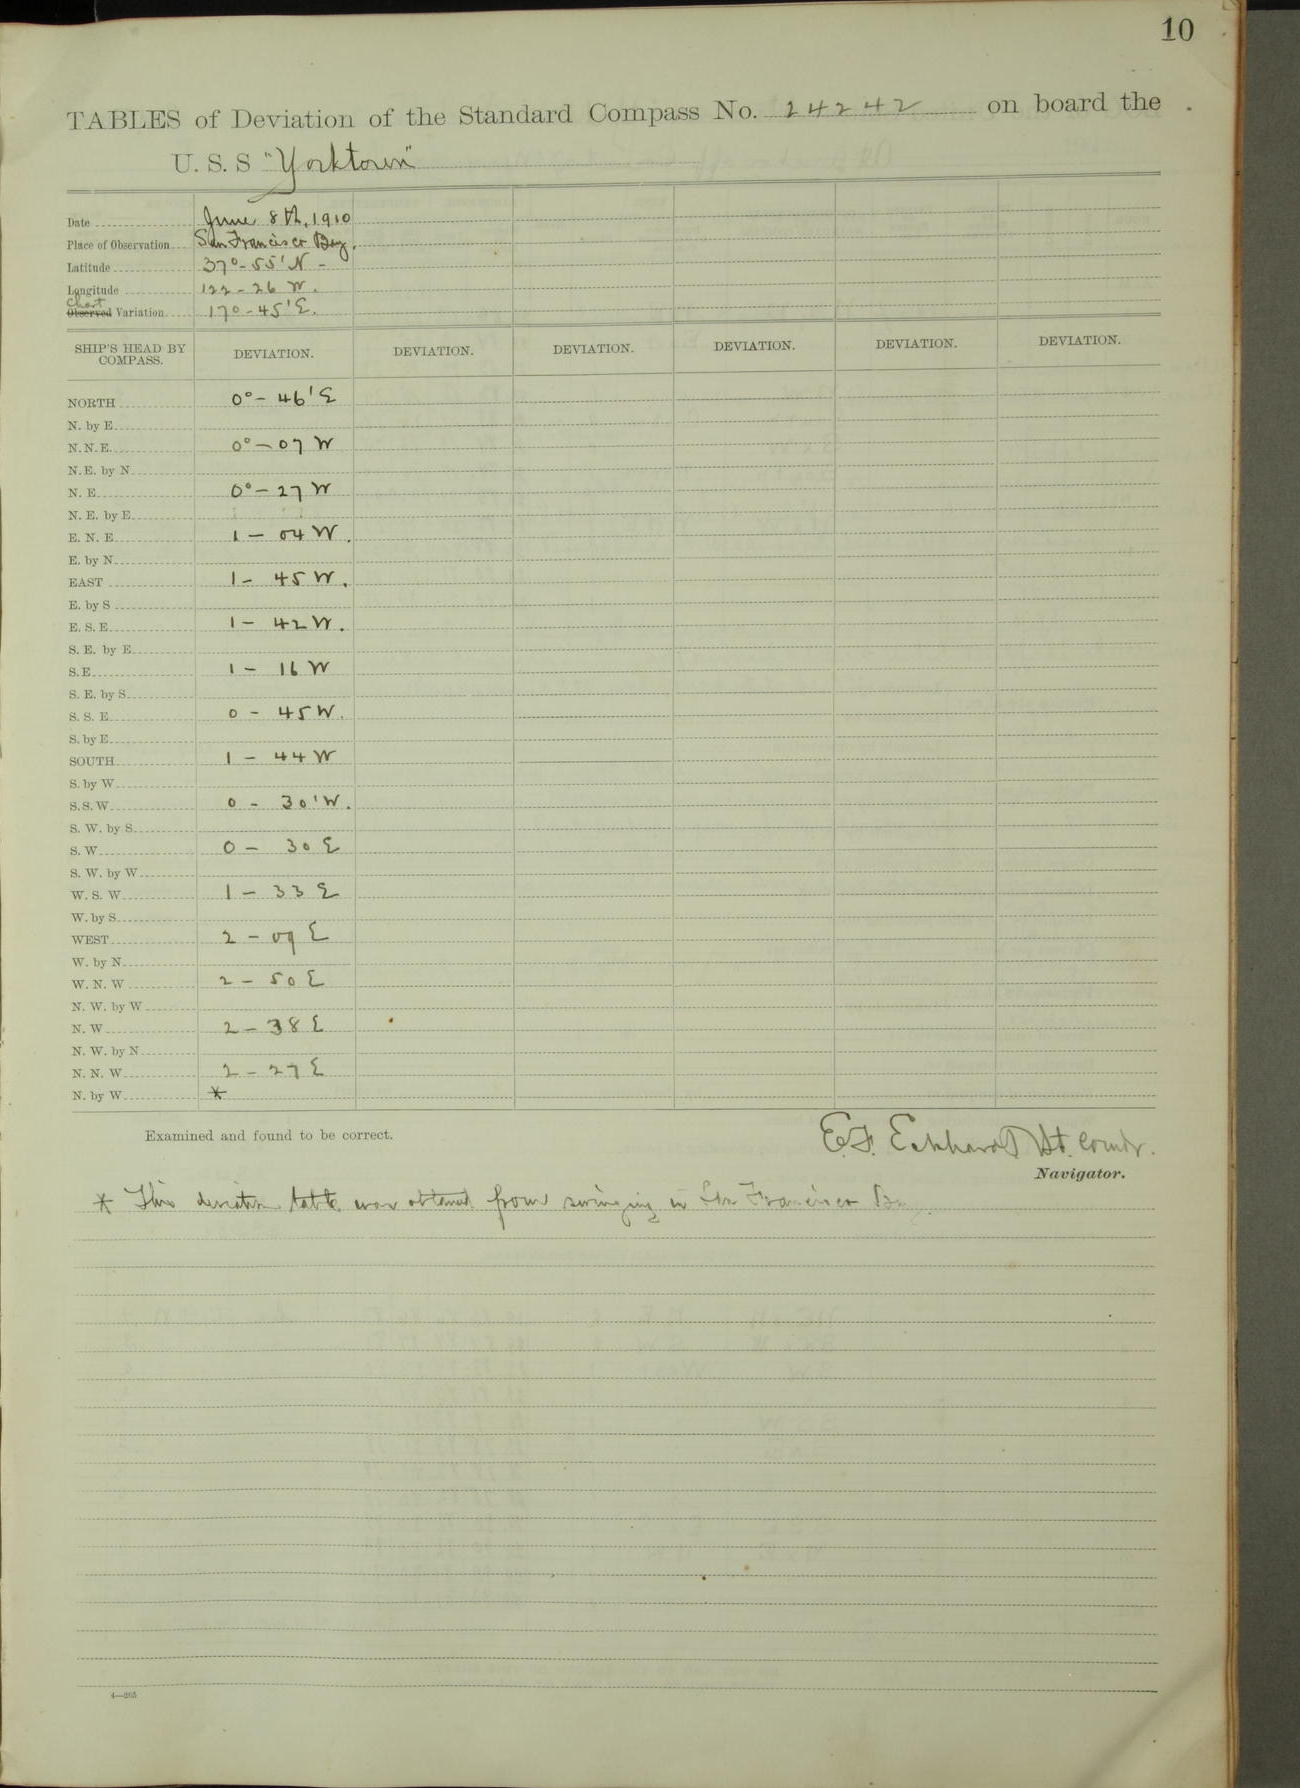 10
TABLES of Deviation of the Standard Compass No. 24242 on board the
U. S. S "Yorktown"
Date June 8th, 1910
Place of Observation San Francisco Bay.
Latitude 37°-55' N -
Longitude 122-26 W.
Chart
Observed Variation 17°-45' E.
SHIP'S HEAD BY COMPASS. DEVIATION. DEVIATION. DEVIATION. DEVIATION. DEVIATION. DEVIATION.
NORTH 0°- 46' E
N. by E.
N. N. E. 0°- 07 W
N. E. by N.
N. E. 0°- 27 W
N. E. by E.
E. N. E. 1 - 04 W.
E. by N.
EAST 1 - 45 W.
E. by S
E. S. E. 1 - 42 W.
S. E. by E.
S. E. 1 - 16 W
S. E. by S.
S. S. E. 0 - 45 W.
S. by E.
SOUTH 1 - 44 W
S. by W.
S. S. W. 0 - 30' W.
S. W. by S.
S. W. 0 - 30 E
S. W. by W.
W. S. W. 1 - 33 E
W. by S.
WEST 2 - 09 E
W. by N.
W. N. W 2 - 50 E
N. W. by W
N. W 2 - 38 E
N. W. by N.
N. N. W. 2 - 27 E
N. by W. *
Examined and found to be correct. E. F. Eckhardt Lt. Comdr.
Navigator.
* This deviation table was obtained from swinging in San Francisco Bay.
4—265